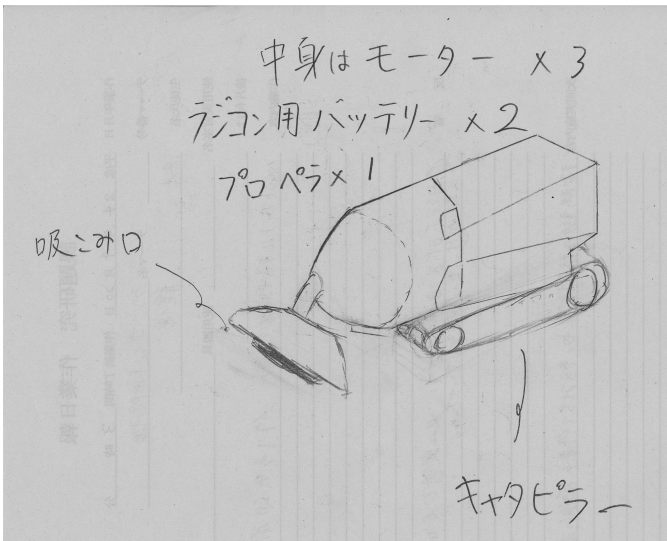 中身はモーター × 3
ラジコン用バッテリー ×2
プロペラ× 1
吸こみ口
キャタピラー